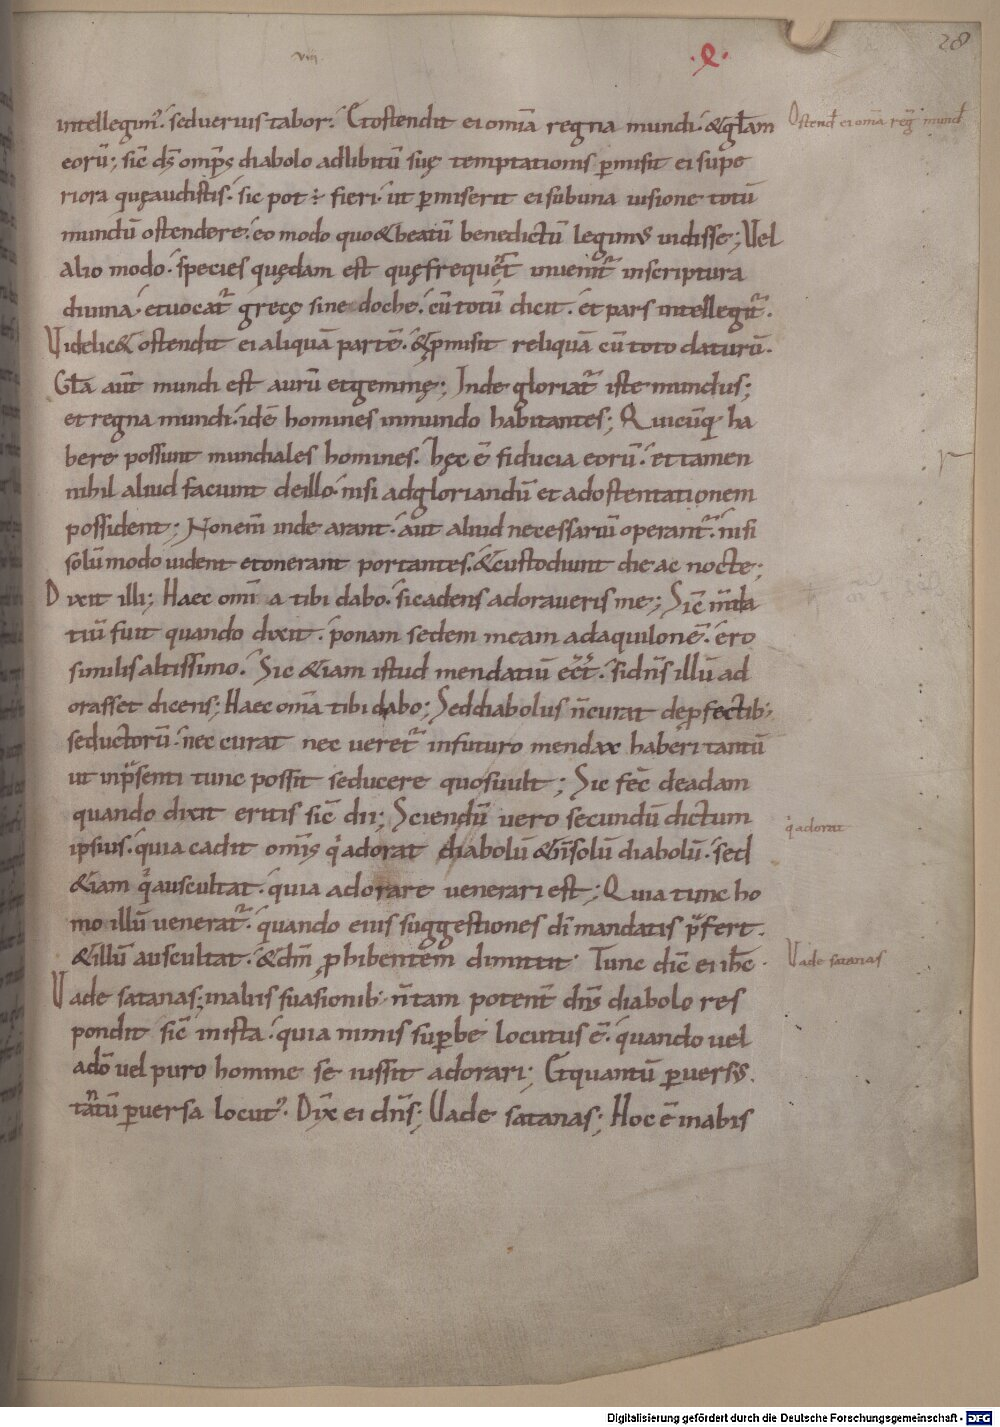 28
viii
.e.
intellegim᷒. sed verius tabor. Et ostendit ei om̄ia regna mundi. & gl̄am
Ostend̄ ei om̄a reg̅ mund̄
eorū; sic̄ ds̄ omp̄s diabolo ad libitū suę temptationis p̄misit ei supe
riora quę audistis. sic pot ÷ fieri. ut p̄miserit ei sub una visione totū
mundū ostendere. eo modo quo & beatū benedictū legimus vidisse; Vel
alio modo. species quędam est quę frequent̄ invenit᷑ in scriptura
divina. et vocat᷑ grecę sine doche. cū totū dicit. et pars intellegit᷑.
Videlic& ostendit ei aliquā partē. & p̄misit reliquā cū toto daturū.
Gl̄a aut̄ mundi est aurū et gemmę; Inde gloriat᷑ iste mundus;
et regna mundi. idē homines in mundo habitantes; Quicūq; ha
bere possunt mundiales homines. hęc ē fiducia eorū. et tamen
nihil aliud faciunt de illo. nisi ad gloriandū et ad ostentationem
possident; Non eni᷒ inde arant. aut aliud necessariū operant᷑. nisi
solū modo vident et onerant portantes. & custodiunt die ac nocte;
Dixit illi; Haec om̄ia tibi dabo. si cadens adoraveris me; Sic̄ m̄da
tiū fuit quando dixit. ponam sedem meam ad aquilonē. ero
similis altissimo. Sic & iam istud mendatiū ēet̄. si dn̄s illū ad
orasset dicens; Haec om̄a tibi dabo; Sed diabolus n̄ curat de p̄fectib;
seductorū. nec curat nec veret᷑ in futuro mendax haberi tantū
ut in p̄senti tunc possit seducere quos vult; Sic fec̄ de adam
quando dixit eritis sic̄ dii; Sciendū vero secundū dictum
ipsius. quia cadit om̄is qi adorat diabolū & n̄ solū diabolū. sed
qi adorat
& iam qi auscultat. quia adorare venerari est; Quia tunc ho
mo illū venerat᷑. quando eius suggestiones dī mandatis p̄fert.
& illū auscultat. & dn̄m p̄hibentem dimittit. Tunc dic̄ ei ih̄c.
Vade satanas
Vade satanas; in aliis suasionib; n̄ tam potent̄ dn̄s diabolo res
pondit sic̄ in ista. quia nimis sup̄be locutus ē. quando vel
a dō vel puro homine se iussit adorari; Et quantū p̄versus.
tantū p̄versa locut᷒. Dix̄ ei dn̄s; Vade satanas; Hoc ē in abis
Digitalisierung gefördert durch die Deutsche Forschungsgemeinschaft - DFG